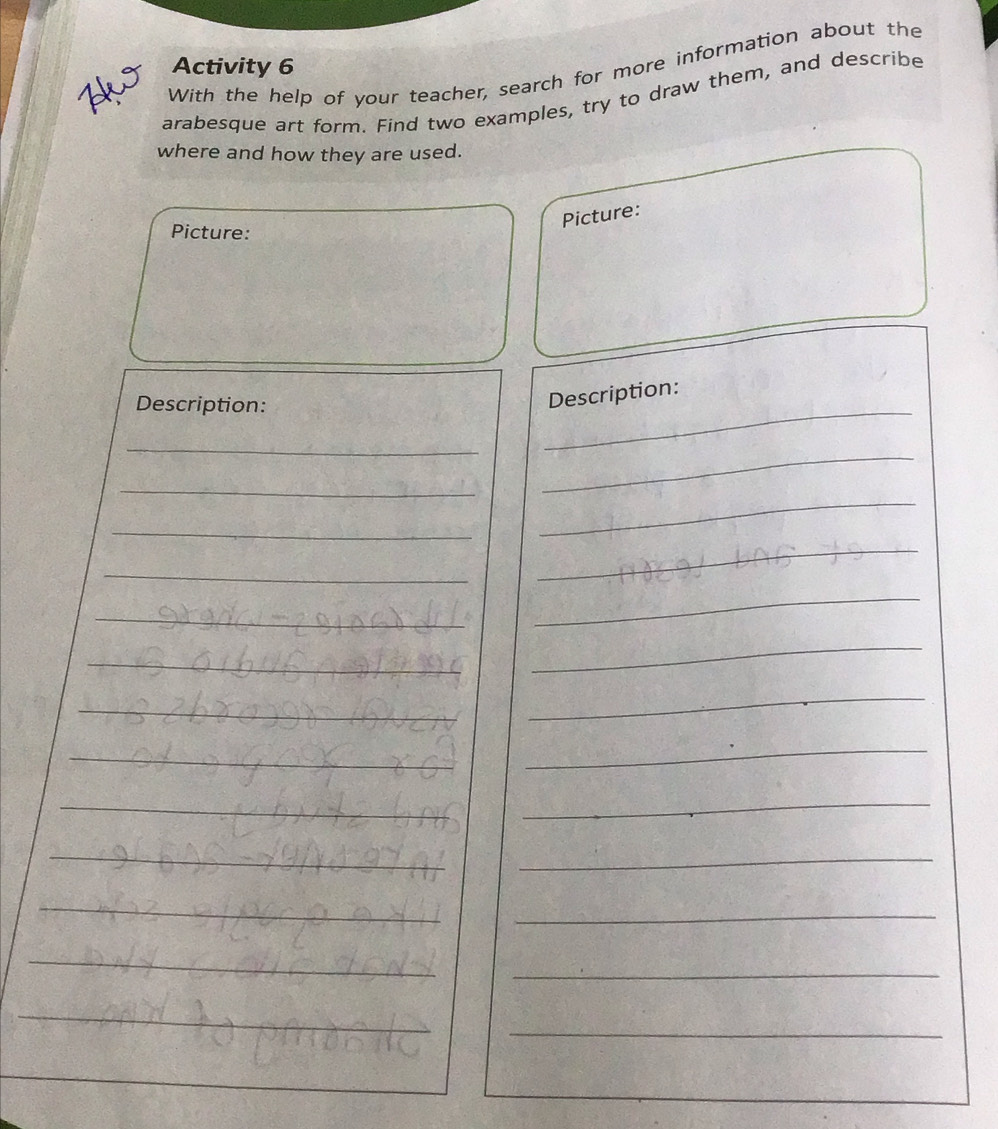 Activity 6
With the help of your teacher, search for more information about the
arabesque art form. Find two examples, try to draw them, and describe
where and how they are used.
Picture:
Picture:
Description:
Description: